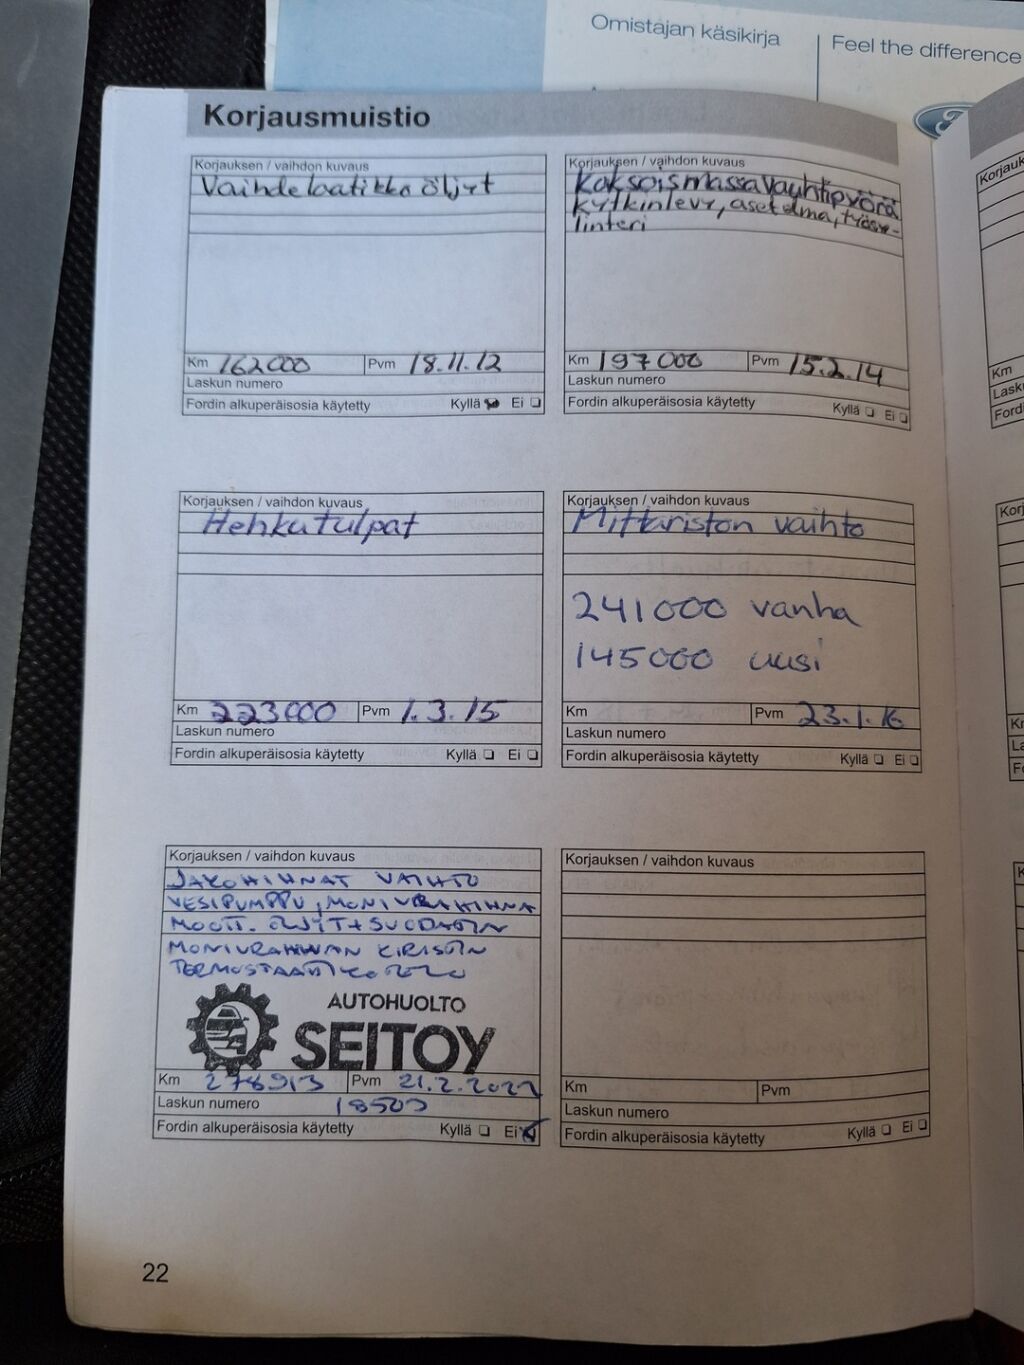 Omistajan käsikirja
Feel the difference
Korjausmuistio
Korjauksen / vaihdon kuvaus
Vaihdelaatikko öljyt
Km 162000 Pvm 18.11.12
Laskun numero
Fordin alkuperäisosia käytetty Kyllä Ei
Korjauksen / vaihdon kuvaus
Kaksoismassavauhtipyörä
kytkinlevy, asetelma, työsy-
linteri
Km 197000 Pvm 15.2.14
Laskun numero
Fordin alkuperäisosia käytetty Kyllä Ei
Korjauksen / vaihdon kuvaus
Hehkutulpat
Km 223000 Pvm 1.3.15
Laskun numero
Fordin alkuperäisosia käytetty Kyllä Ei
Korjauksen / vaihdon kuvaus
Mittariston vaihto
241000 vanha
145000 uusi
Km Pvm 23.1.16
Laskun numero
Fordin alkuperäisosia käytetty Kyllä Ei
Korjauksen / vaihdon kuvaus
JAKOHIHNAT VAIHTO
VESIPUMPPU, MONIURAHIHNA
MOOTT. ÖLJYT + SUODATIN
MONIURAHIHNAN KIRISTIN
AUTOHUOLTO
SEITOY
Km 278913 Pvm 21.2.2022
Laskun numero
Fordin alkuperäisosia käytetty Kyllä Ei
Korjauksen / vaihdon kuvaus
Km Pvm
Laskun numero
Fordin alkuperäisosia käytetty Kyllä Ei
22
Korjauk
Km
Lask
Fordi